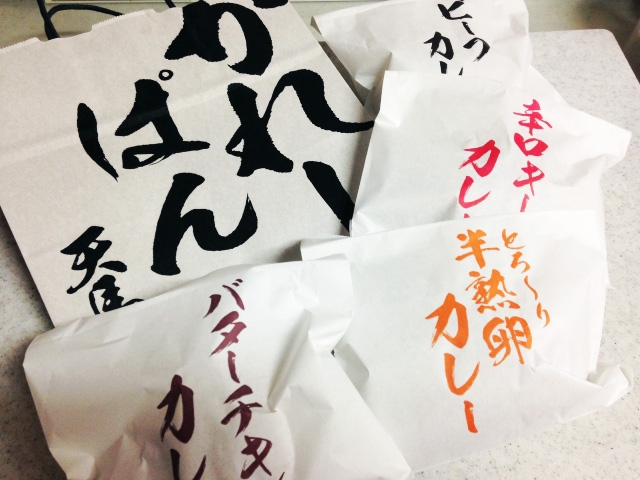 かれー
ぱん
天馬
ビーフ
カレー
辛口キー
カレー
とろ〜り
半熟卵
カレー
バターチキ
カレ